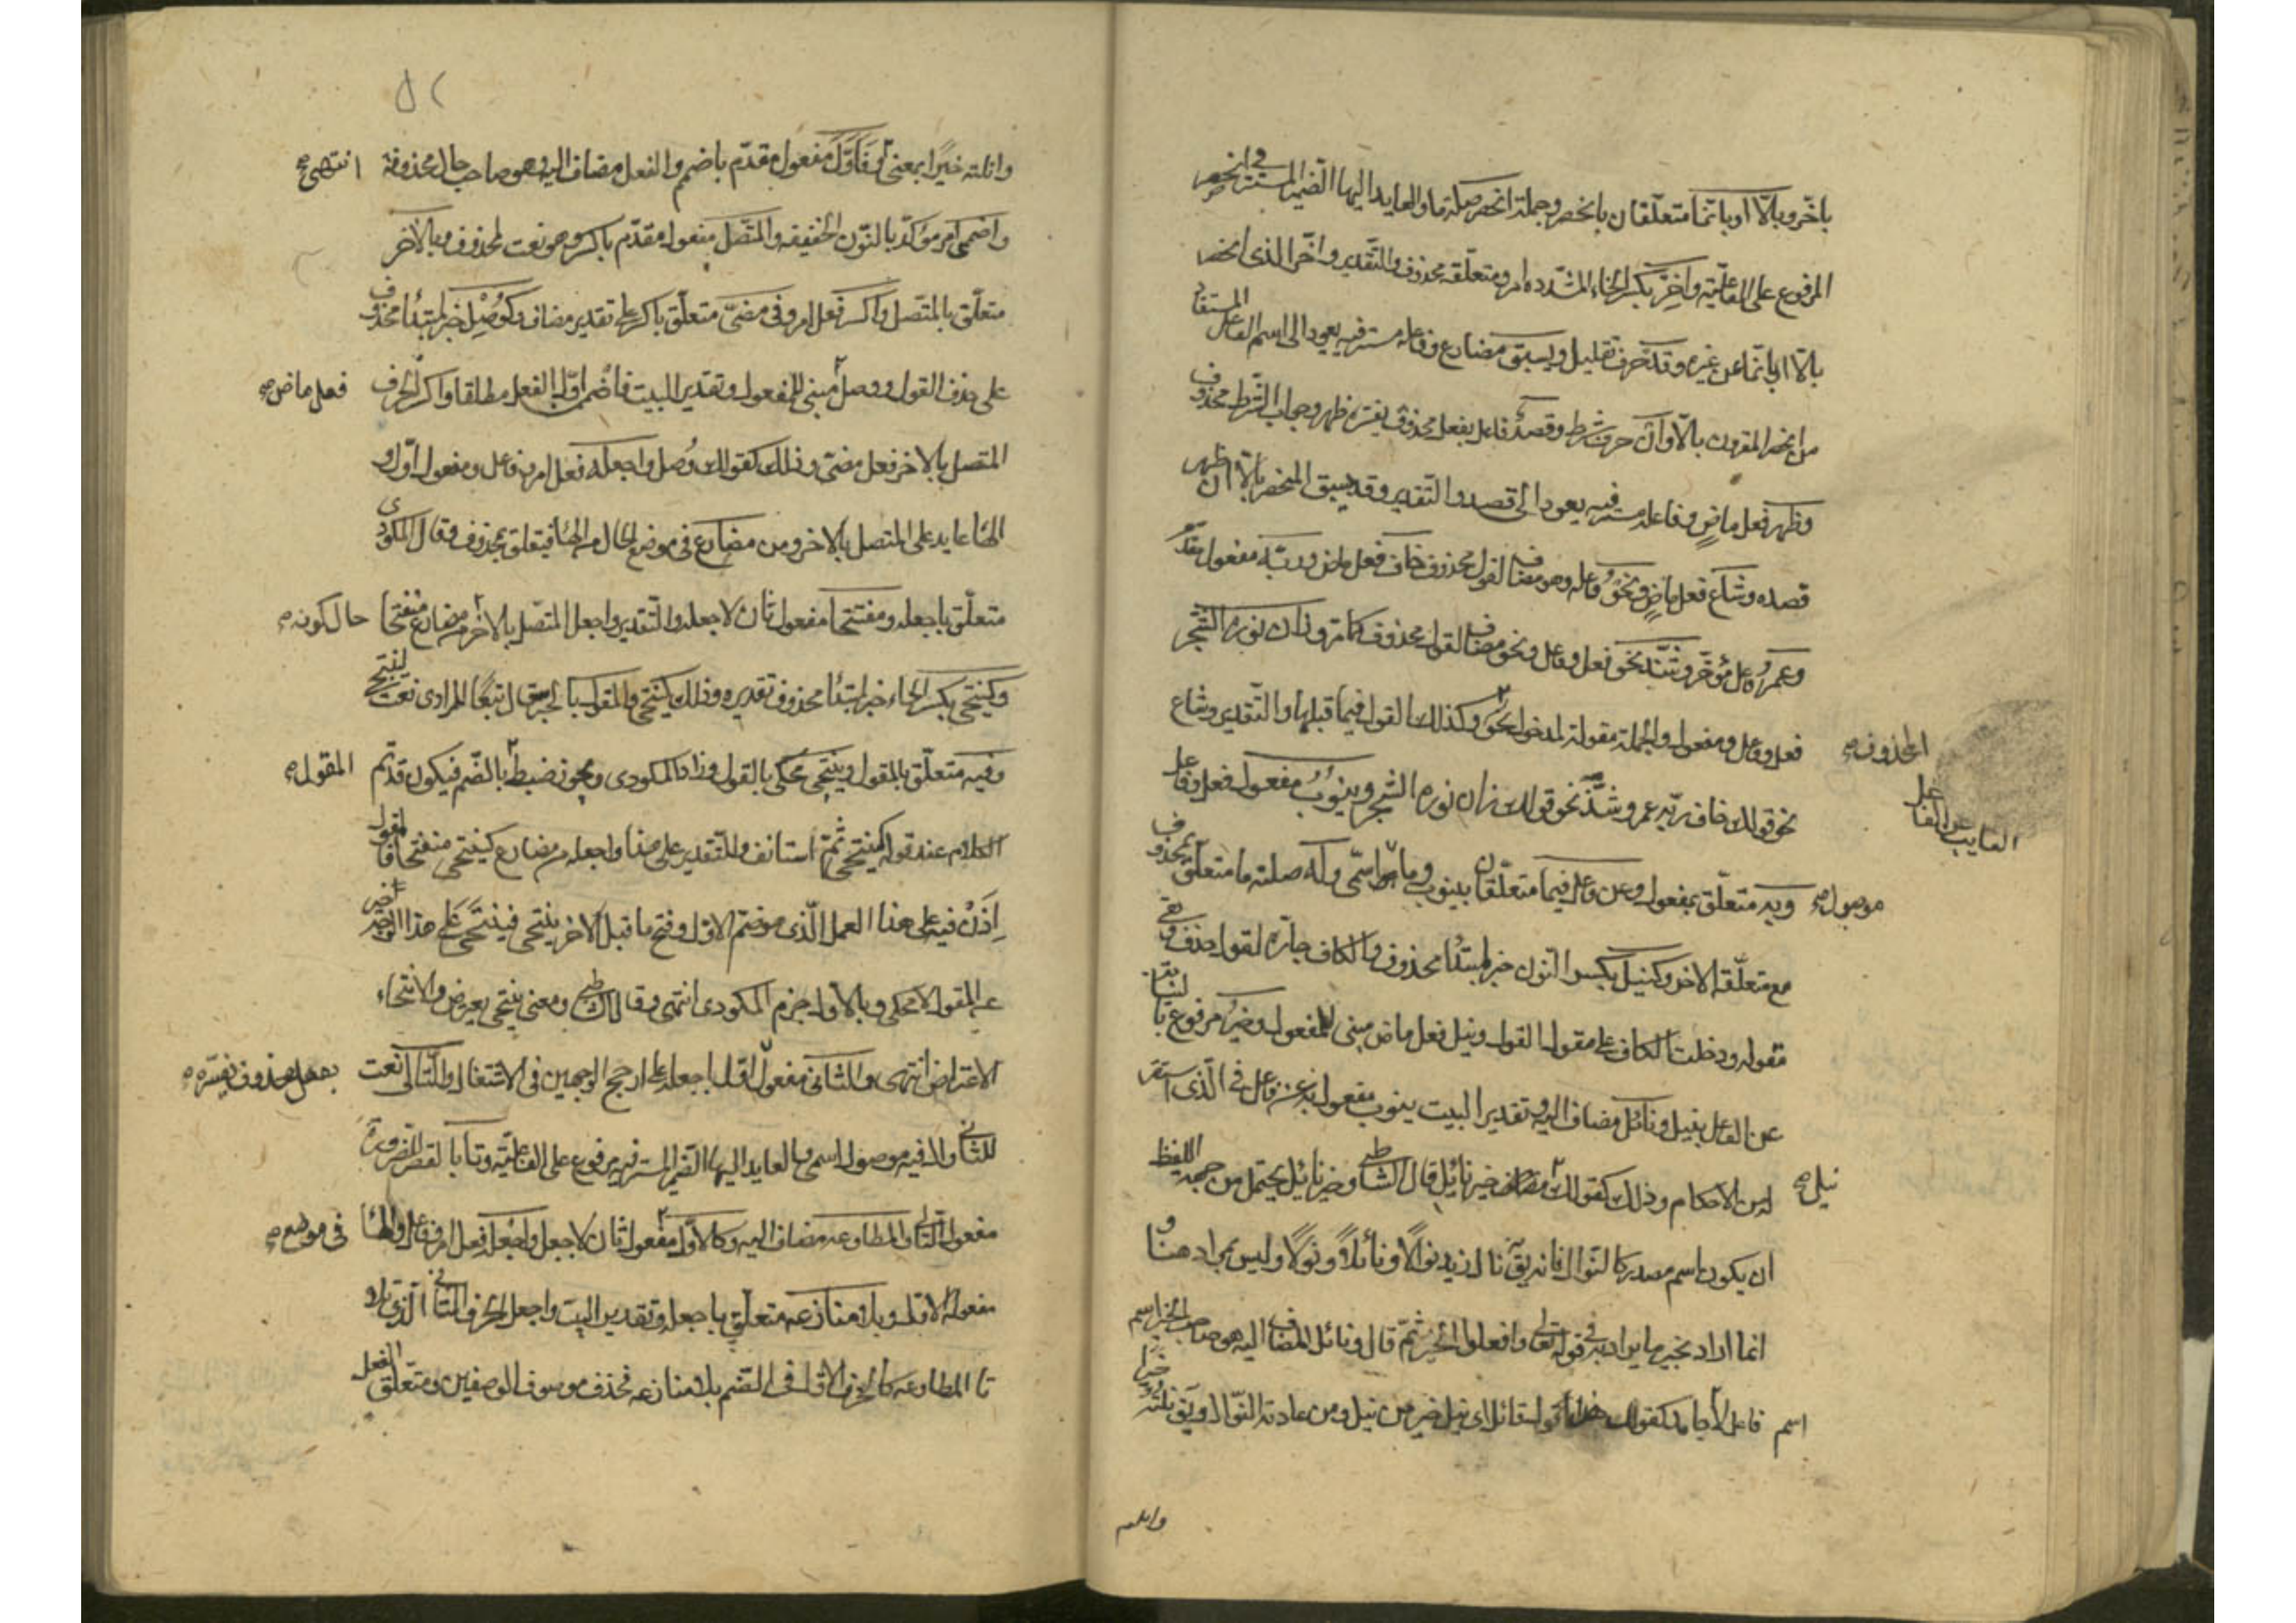 باخّر وبالّا او بانّما متعلّقان بانحصر وجملة انحصر صلة ما والعايد اليها الضّمير المستتر فى انحصر
المرفوع على الفاعليّة واخّر بكسر الخاء المشدّدة امر ومتعلّقه محذوف والتّقدير واخّر الذى انحصر
بالّا او بانّما عن غيره وقد حرف تقليل ويسبق مضارع وفاعله مستتر فيه يعود الى اسم الفاعل المستفاد
من انحصر المقرون بالّا وان حرف شرط وقصد فاعل بفعل محذوف يفسّره ظهر وجواب الشّرط محذوف
وظهر فعل ماض وفاعله مستتر فيه يعود الى قصد والتّقدير وقد يسبق المنحصر بالّا ان ظهر
قصده وشاع فعل ماض ونحو فاعله وهو مضاف لقول محذوف خاف فعل ماض وربّه مفعول مقدّم
وعمر فاعل مؤخّر وشذّ نحو فعل وفاعل ونحو مضاف لقول محذوف كما مرّ وزان نوره الشّجر
فعل وفاعل ومفعول والجملة مقولة لمدخول نحو وكذلك القول فيما قبلها والتّقدير وشاع
المحذوف
نحو قولك خاف ربّه عمر وشذّ نحو قولك زان نوره الشّجر وينوب مفعول فعل وفاعل
النايب عن الفاعل
وبه متعلّق بمفعول وعن فاعل فيما متعلّقان بينوب وما اسمى وله صلته ما متعلّق بمحذوف
موصول
مع متعلّقه الاخر وكنيل بكسر النّون خبر لمبتدأ محذوف والكاف جارّة لقول حذف وبقى
مقوله ودخلت الكاف على مقول القول ونيل فعل ماض مبنى للمفعول وخير مرفوع بالنيابة
عن الفاعل بنيل ونائل مضاف اليه وتقدير البيت ينوب مفعول به عن فاعل فى الّذى استقر
له من الاحكام وذلك كقولك خير نائل قال الشاطبى وخير نائل يحتمل من جهة اللفظ
نيل
ان يكون اسم مصدر كالنّوال فانه يق نال زيد نوالًا ونائلًا ونولًا وليس بمراد هنا و
انما اراد بخير ما يراد به فى قوله تعالى وافعلوا الخير ثمّ قال ونائل المضاف اليه هو صاحب الخير اسم
اسم فاعل لا جامد كقولك قول قائل اى نيل خير من نيل ومن عادته النّوال ويق نلته خيرا
وانلته
وانلته خيرًا بمعنى فاوّل مفعول مقدّم باضمم والفعل مضاف اليه وهو صاحب حال محذوفة انتهى
واضممن امر مؤكّد بالنّون الخفيفة والمتّصل مفعول مقدّم باكسر وهو نعت لمحذوف وبالآخر
متعلّق بالمتّصل واكسر فعل امر وفى مضىّ متعلّق باكسر على تقدير مضاف وكوصل خبر لمبتدأ محذوف
على حذف القول ووصل مبنى للمفعول وتقدير البيت فاضممن اوّل الفعل مطلقا واكسر الحرف
فعل ماض
المتصل بالاخر فعل مضىّ وذلك كقولك وصل واجعله فعل امر وفاعل ومفعول اوّل و
الهاء عايد على المتصل بالاخر ومن مضارع فى موضع الحال من الهاء فيتعلق بمحذوف وقال المكودى
متعلّق باجعله ومنفتحا مفعول ثان لاجعله والتّقدير واجعل المتّصل بالآخر من مضارع منفتحا
حال كونه
وكينتحى بكسر الحاء خبر لمبتدأ محذوف تقديره وذلك كينتحى والمقول بالجر قال تبعًا للمرادى نعت لينتحى
وفيه متعلّق بالمقول وينتحى محكى بالقول وزاد المكودى ويجوز ضبط بالضّم فيكون قد تم
المقول
الكلام عند قوله كينتحى ثمّ استانف والتّقدير على هذا واجعله من مضارع كينتحى منفتحا فالمقول
اذن فيه على هذا العمل الّذى هو ضمّ الاوّل وفتح ما قبل الآخر ينتحى فينتحى على هذا الوجه خبر
عن المقول لا محكى وبالاول جزم المكودى انتهى وقال الشاطبى ومعنى ينتحى يعرض والانتحاء
الاعتراض انتهى والثانى مفعول اوّل باجعله على ارجح الوجهين فى الاشتغال والتّالى نعت
بفعل محذوف يفسّره
للثانى وال فيه موصول اسمى والعايد اليها الضّمير المستتر فيه مرفوع على الفاعليّة وتا بالقصر للضرورة
مفعول التالى والمطاوعه مضاف اليه وكالاوّل مفعول ثان لاجعل واجعله فعل امر وفاعل والهاء
فى موضع
مفعوله الاوّل وبلا منازعه متعلّق باجعله وتقدير البيت واجعل الحرف الثانى الّذى تلا
تا المطاوعه كالحرف الاوّل فى الضّم بلا منازعه فحذف موصوف الوصفين ومتعلّق الفعل